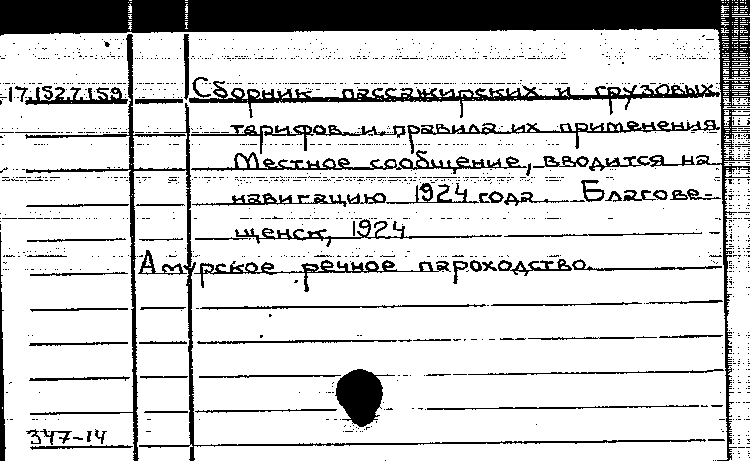 17.152.7.159 Сборник пассажирских и грузовых
тарифов и правила их применения
Местное сообщение, вводится на
навигацию 1924 года. Благове-
щенск, 1924
Амурское речное пароходство.
347-14